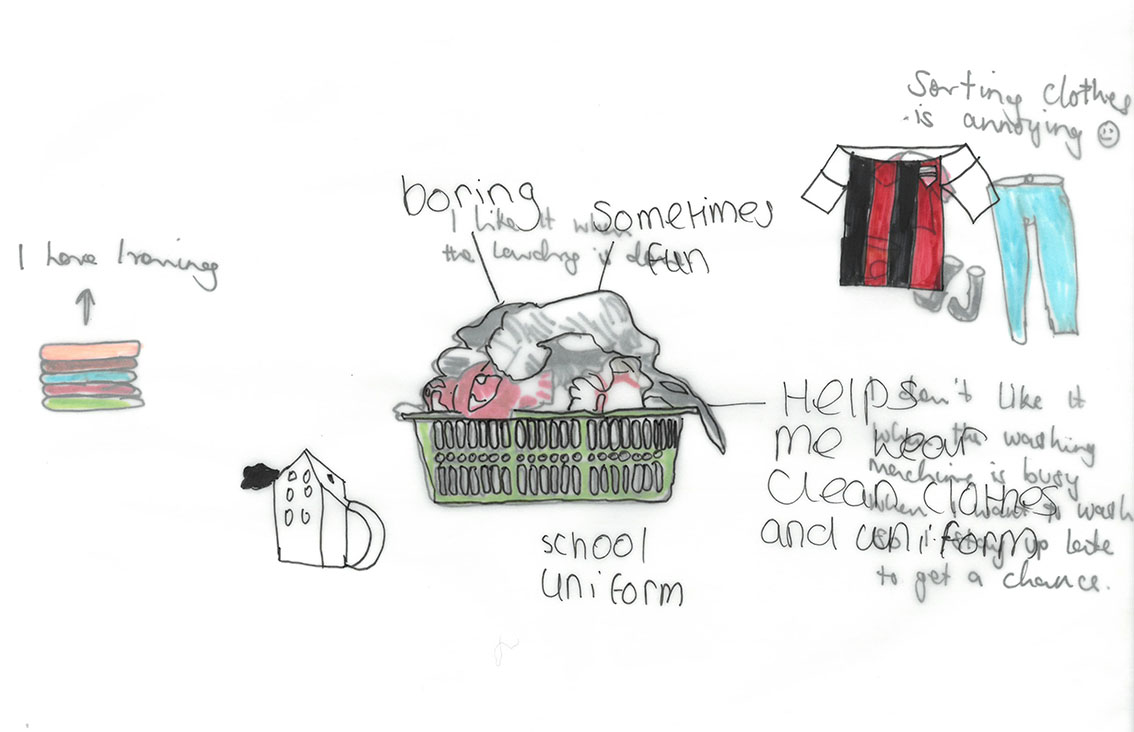 Sorting clothes
is annoying
boring
sometimes
fun
I like it when
the laundry is
I Love Ironing
Helps
me wear
clean clothes
and uniform
don't like it
when the washing
machine is busy
when I want to wash
up late
to get a chance.
school
uniform